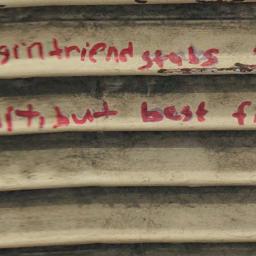 girlfriend stabs
but best f